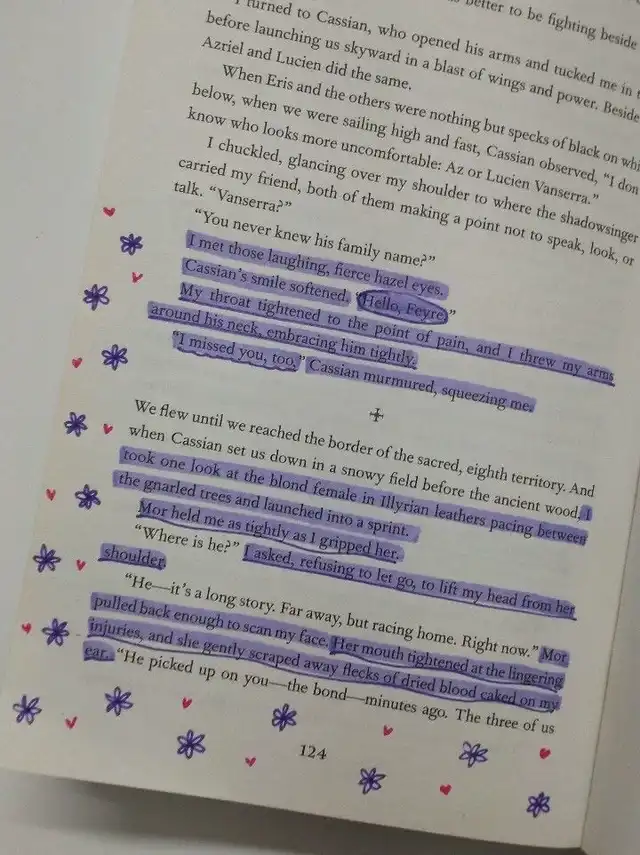 better to be fighting beside
I turned to Cassian, who opened his arms and tucked me in
before launching us skyward in a blast of wings and power. Beside
Azriel and Lucien did the same.
When Eris and the others were nothing but specks of black on
below, when we were sailing high and fast, Cassian observed, "I don
know who looks more uncomfortable: Az or Lucien Vanserra."
I chuckled, glancing over my shoulder to where the shadowsinger
carried my friend, both of them making a point not to speak, look, or
talk. "Vanserra?"
"You never knew his family name?"
I met those laughing, fierce hazel eyes.
Cassian's smile softened. "Hello, Feyre."
My throat tightened to the point of pain, and I threw my arms
around his neck, embracing him tightly.
"I missed you, too," Cassian murmured, squeezing me.
We flew until we reached the border of the sacred, eighth territory. And
when Cassian set us down in a snowy field before the ancient wood, I
took one look at the blond female in Illyrian leathers pacing between
the gnarled trees and launched into a sprint.
Mor held me as tightly as I gripped her.
"Where is he?" I asked, refusing to let go, to lift my head from her
shoulder.
"He—it's a long story. Far away, but racing home. Right now." Mor
pulled back enough to scan my face. Her mouth tightened at the lingering
injuries, and she gently scraped away flecks of dried blood caked on my
ear. "He picked up on you—the bond—minutes ago. The three of us
124